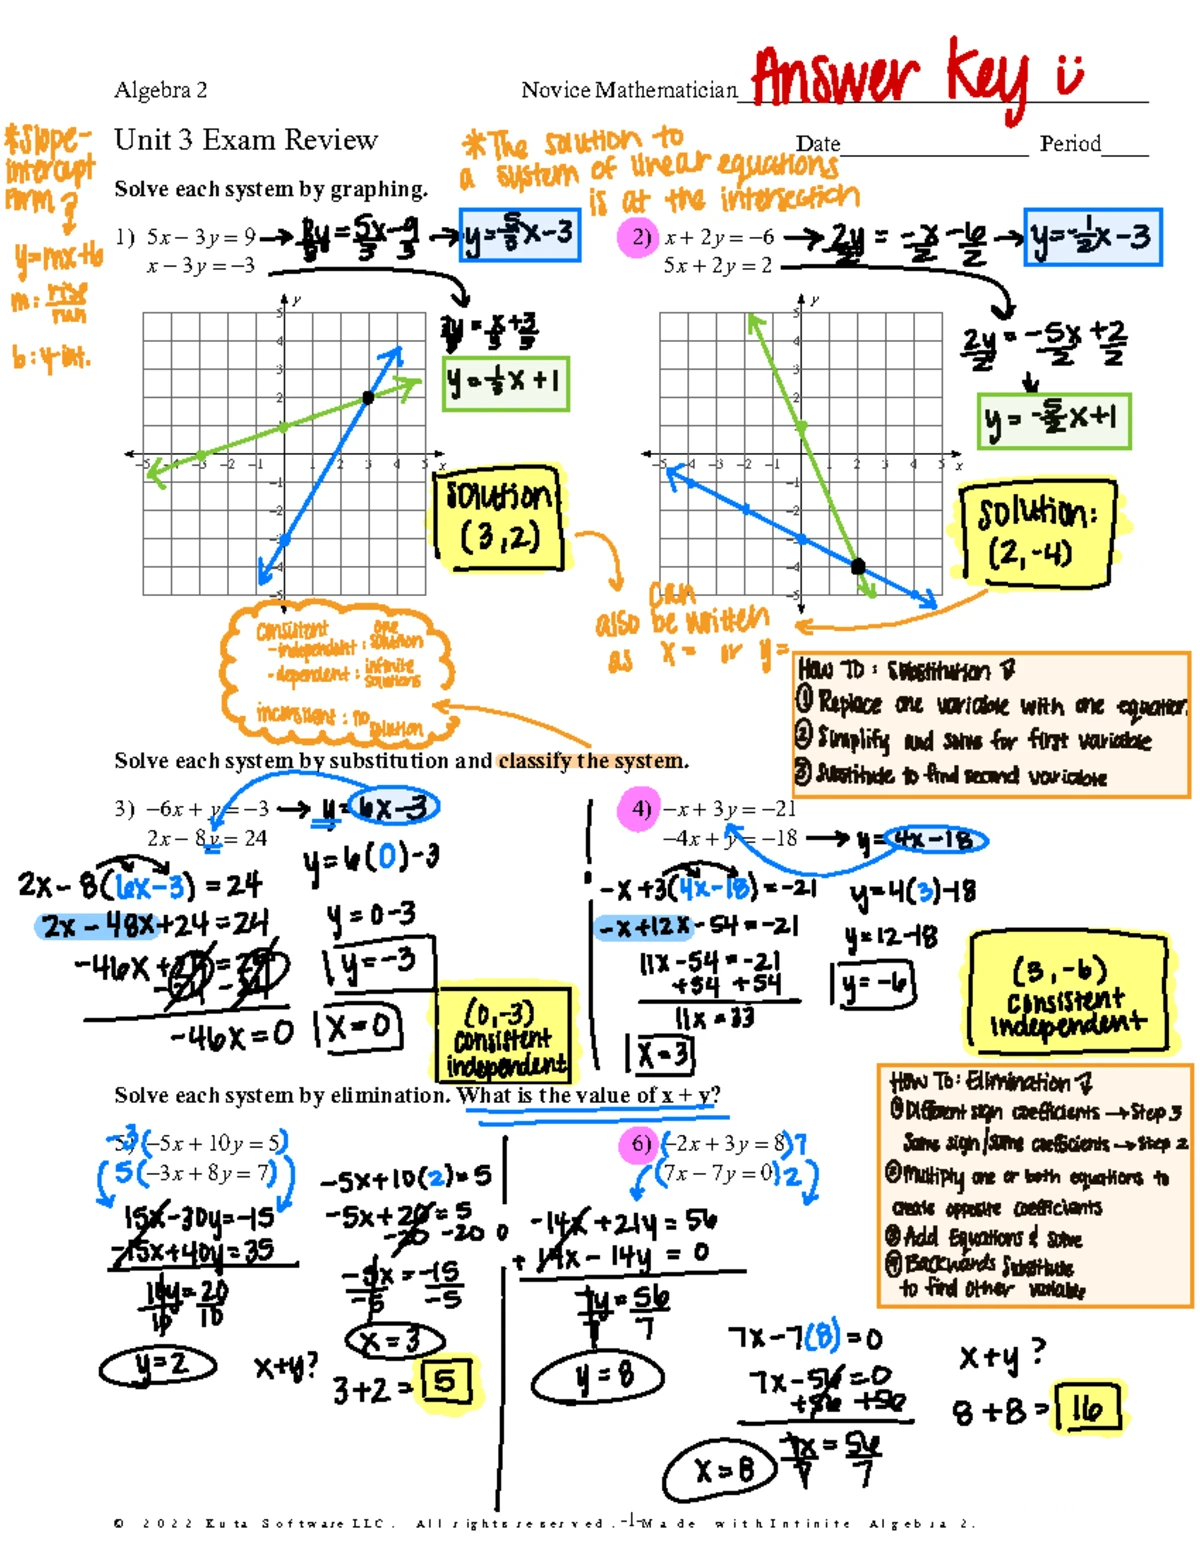 Answer Key
Algebra 2
Novice Mathematician
Unit 3 Exam Review
Date Period
*Slope-
intercept
Form
y=mx+b
m: rise/run
b: y-int.
*The solution to
a system of linear equations
is at the intersection
Solve each system by graphing.
1) 5x − 3y = 9
x − 3y = −3
3y = 5x − 9
3 3 3
y = 5/3x − 3
y = 1/3x + 1
Solution
(3, 2)
2) x + 2y = −6
5x + 2y = 2
2y = −x − 6
2 2 2
y = −1/2x − 3
2y = −5x + 2
2 2 2
y = −5/2x + 1
Solution:
(2, −4)
can
also be written
as x = or y =
consistent
- independent : one solution
- dependent : infinite solutions
inconsistent : no solution
How To: Substitution
① Replace one variable with one equation.
② Simplify and solve for first variable
③ Substitute to find second variable
Solve each system by substitution and classify the system.
3) −6x + y = −3
2x − 8y = 24
y = 6x − 3
2x − 8(6x − 3) = 24
2x − 48x + 24 = 24
−46x + 24 = 24
−24 −24
−46x = 0
x = 0
y = 6(0) − 3
y = 0 − 3
y = −3
(0, −3)
consistent
independent
4) −x + 3y = −21
−4x + y = −18
y = 4x − 18
−x + 3(4x − 18) = −21
−x + 12x − 54 = −21
11x − 54 = −21
+54 +54
11x = 33
x = 3
y = 4(3) − 18
y = 12 − 18
y = −6
(3, −6)
consistent
independent
Solve each system by elimination. What is the value of x + y?
How To: Elimination
① Different sign coefficients → Step 3
Same sign/same coefficients → Step 2
② Multiply one or both equations to
create opposite coefficients
③ Add Equations & solve
④ Backwards Substitute
to find other variable
5) −3(−5x + 10y = 5)
5(−3x + 8y = 7)
15x − 30y = −15
−15x + 40y = 35
10y = 20
10 10
y = 2
−5x + 10(2) = 5
−5x + 20 = 5
−20 −20
−5x = −15
−5 −5
x = 3
x + y?
3 + 2 = 5
6) (−2x + 3y = 8)7
(7x − 7y = 0)2
−14x + 21y = 56
+ 14x − 14y = 0
7y = 56
7 7
y = 8
7x − 7(8) = 0
7x − 56 = 0
+56 +56
7x = 56
7 7
x = 8
x + y ?
8 + 8 = 16
© 2022 Kuta Software LLC. All rights reserved. -1- Made with Infinite Algebra 2.